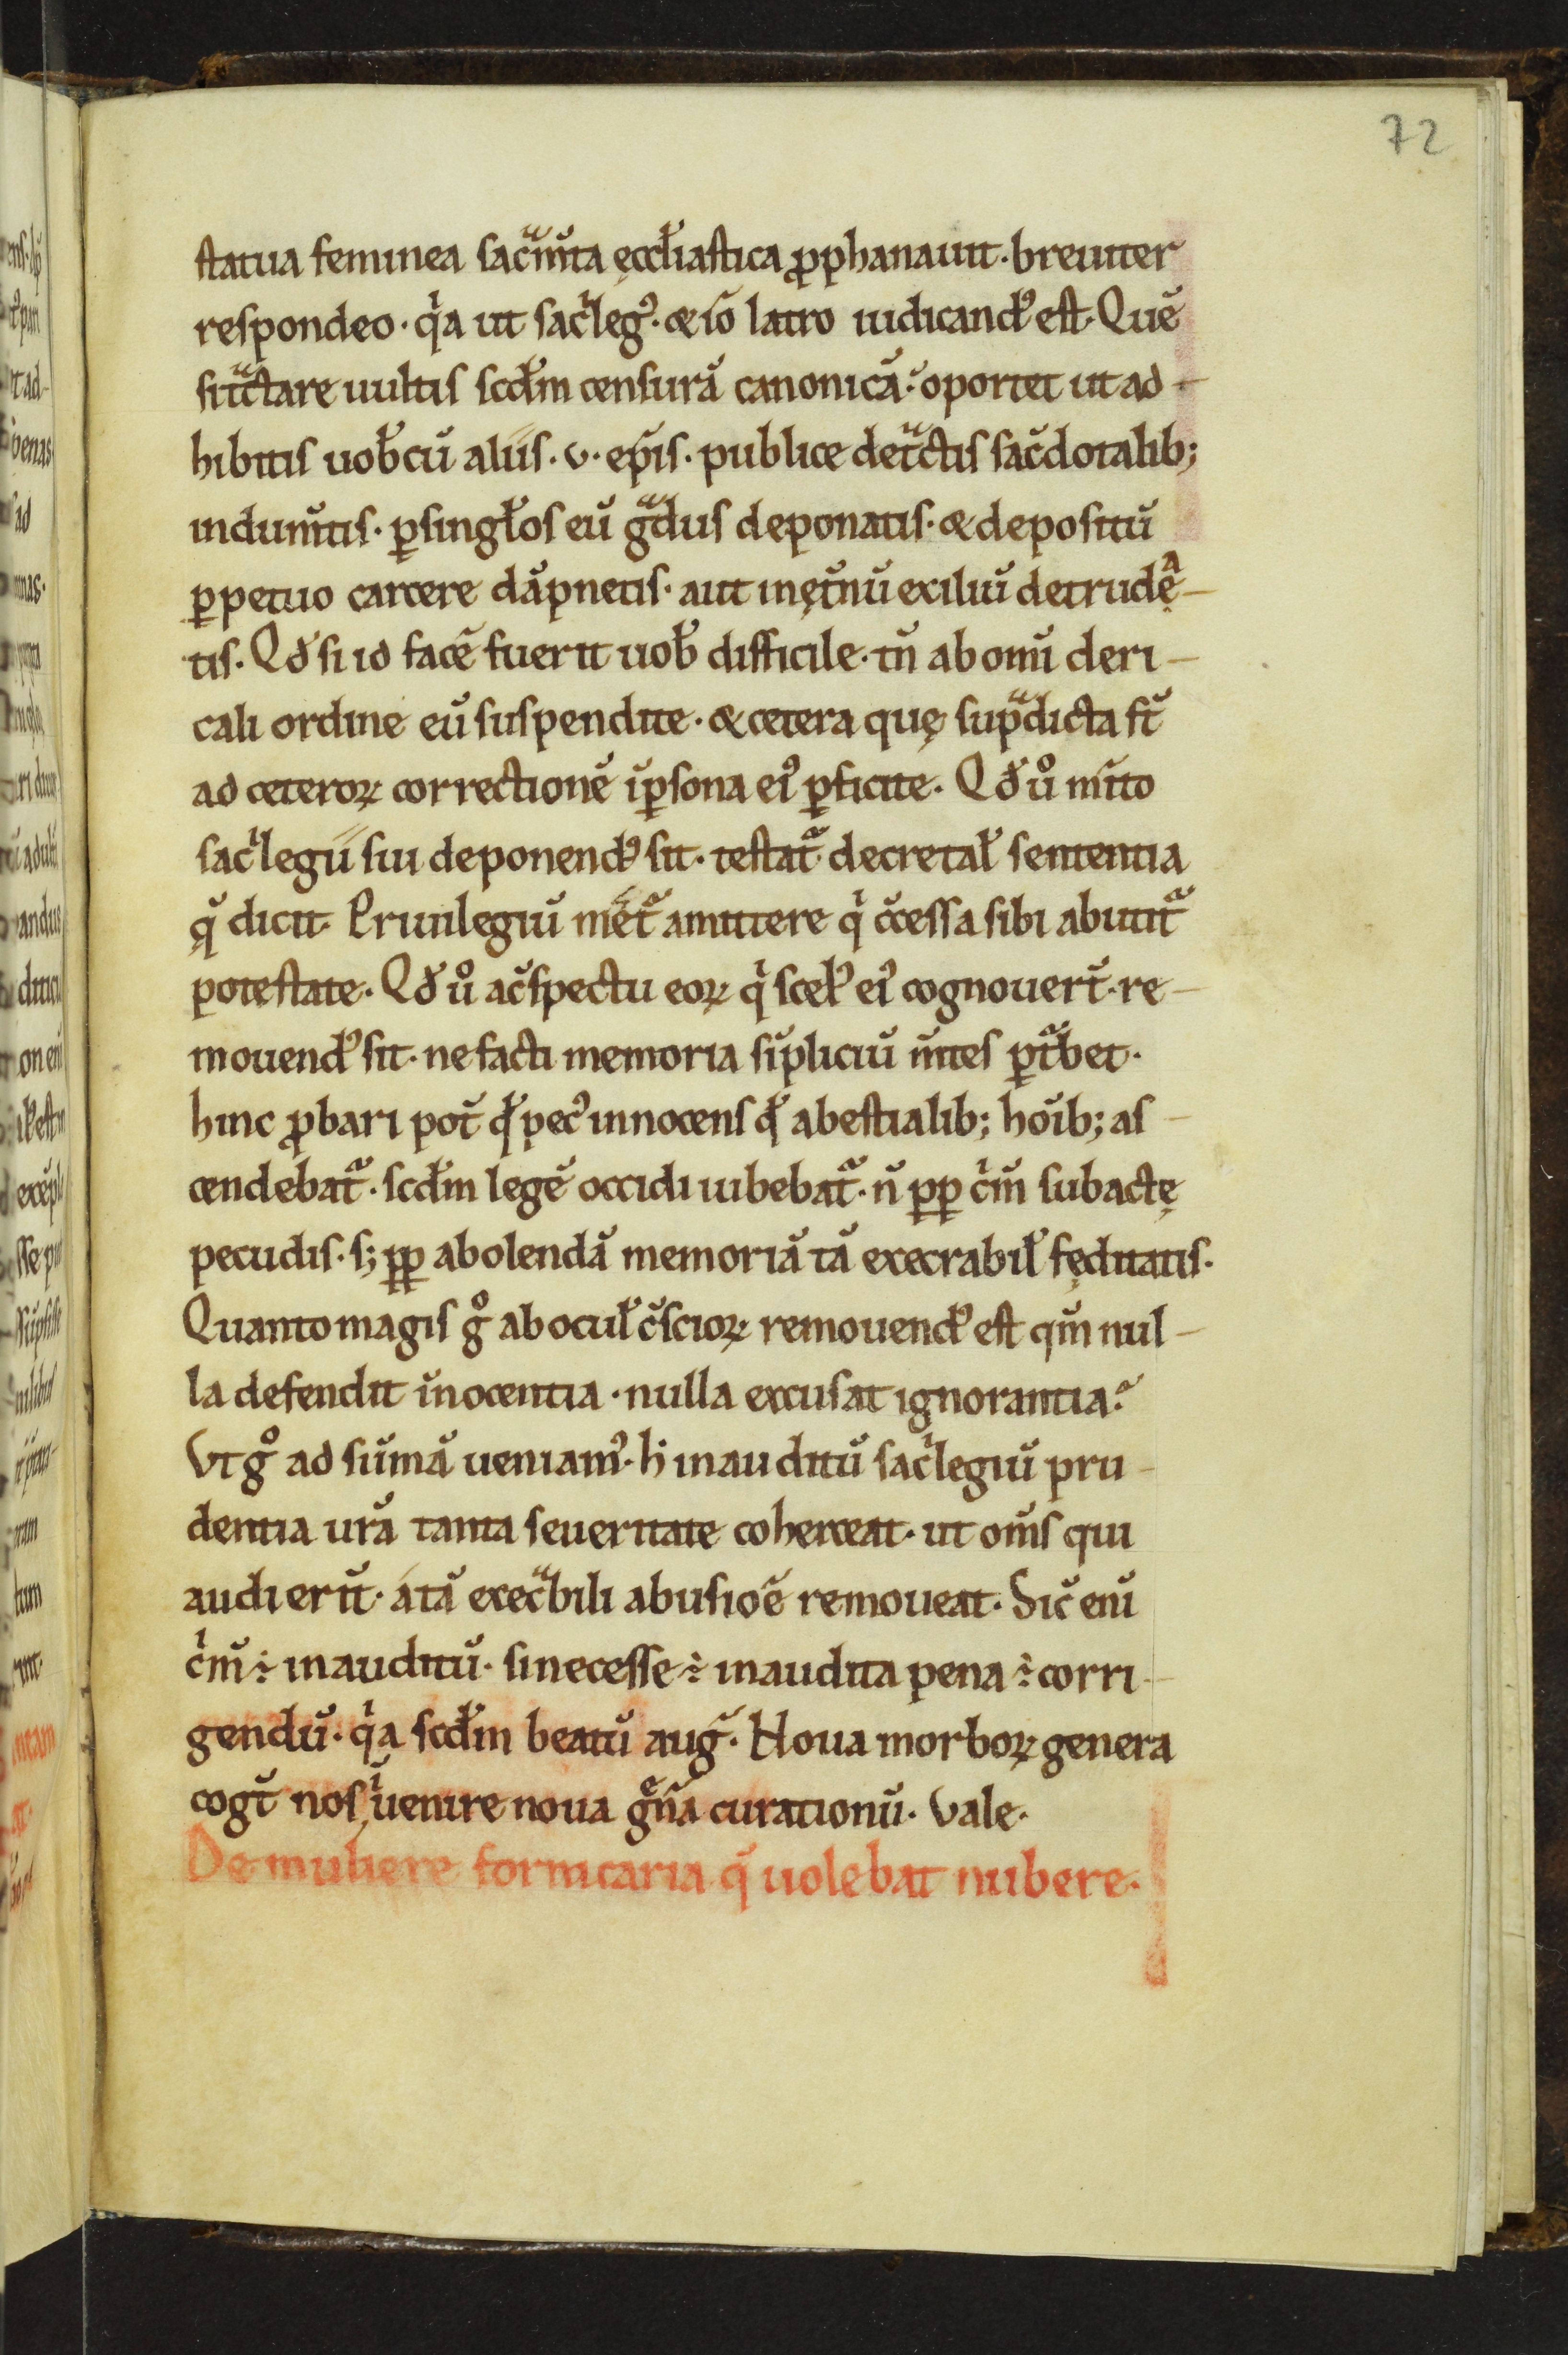 72
statua feminea sacͣm̄ta ęccl̆iastica ꝓphanauit. breuiter
respondeo. qͥa ut sacͥleg᷒. & iō latro iudicand᷒ est. Quē
si tͣctare uultis scd̄m censurā canonicā. oportet ut ad-
hibitis uob̄ cū aliis. v. ep̄is. publice detͣctis sac̄dotalib;
indum̄tis. ꝑ singl̄os eū gͣdus deponatis. & depositū
ꝑpetuo carcere dāpnetis. aut in ęt̄nū exiliū detrudę-
tis. Qd̄ si id facē fuerit uob̄ difficile. tn̄ ab omī cleri-
cali ordine eū suspendite. & cetera quę supͣdicta st̄
ad ceteroꝝ correctionē ī ꝑsona ei᷒ ꝑficite. Qd̄ uͦ m̄ito
sacͥlegii sui deponend᷒ sit. testat᷑ decretal̄ sententia
q̄ dicit. Priuilegiū mēt᷑ amittere qͥ c̄cessa sibi abutit᷑
potestate. Qd̄ uͦ a c̄spectu eoꝝ qͥ scel᷒ ei᷒ cognouer̄t. re-
mouend᷒ sit. ne facti memoria sīpliciū m̄tes ꝑt᷑bet.
hinc ꝓbari pot̄ qd̄ pec᷒ innocens qd̄ a bestialib; hoīb; as-
cendebat᷑. scd̄m legē occidi iubebat᷑. n̄ ꝓp cͥm̄ subactę
pecudis. s; ꝓp abolendā memoriā tā execrabil̄ fęditatis.
Quanto magis gͦ ab ocul̄ c̄scioꝝ remouend᷒ est qm̄ nul-
la defendit īnocentia. nulla excusat ignorantia.
Vt gͦ ad sūmā ueniam᷒. h̄ inauditū sacͥlegiū pru-
dentia ur̄a tanta seueritate coherceat. ut om̄s qui
audierit. a tā execͣbili abusiōe remoueat. Sic̄ enī
cͥm̄ ÷ inauditū. si necesse ÷ inaudita pena ÷ corri-
gendū. qͥa scd̄m beatū aug̃. Noua morboꝝ genera
cogt̄ nos īuenire noua gn̄a curationū. Vale.
De muliere fornicaria q̄ uolebat nubere.